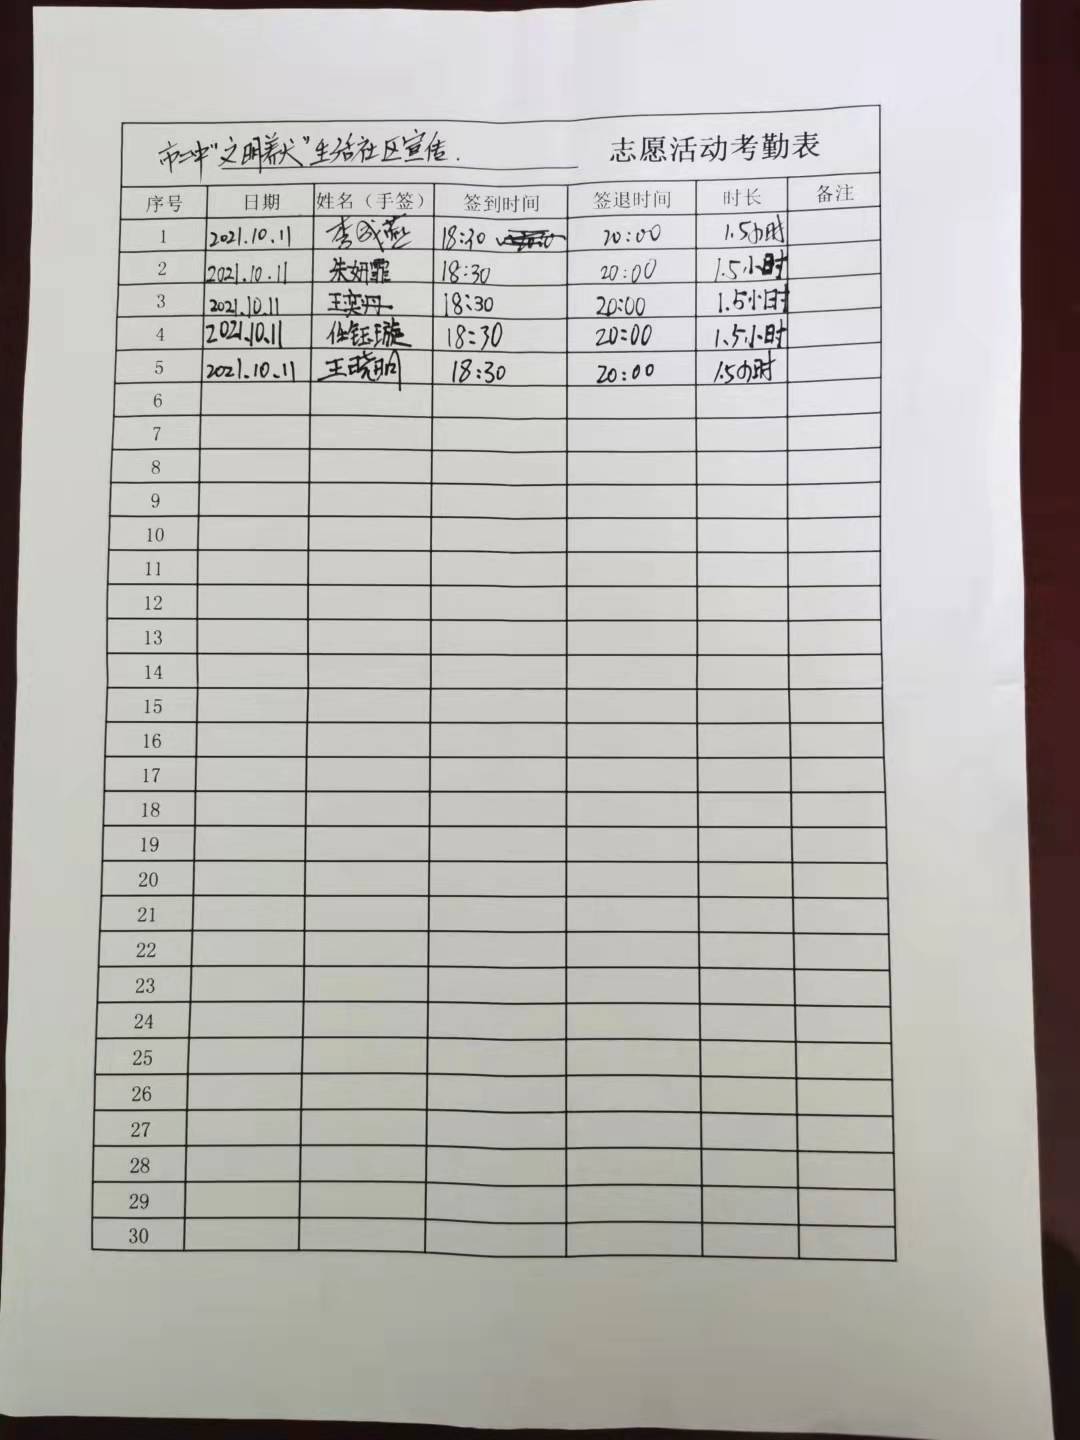 市二中"文明养犬"生活社区宣传. 志愿活动考勤表
序号 日期 姓名（手签） 签到时间 签退时间 时长 备注
1 2021.10.11 李成燕 18:30 20:00 1.5小时
2 2021.10.11 朱妍霏 18:30 20:00 1.5小时
3 2021.10.11 王奕丹 18:30 20:00 1.5小时
4 2021.10.11 任钰璇 18:30 20:00 1.5小时
5 2021.10.11 王晓明 18:30 20:00 1.5小时
6
7
8
9
10
11
12
13
14
15
16
17
18
19
20
21
22
23
24
25
26
27
28
29
30